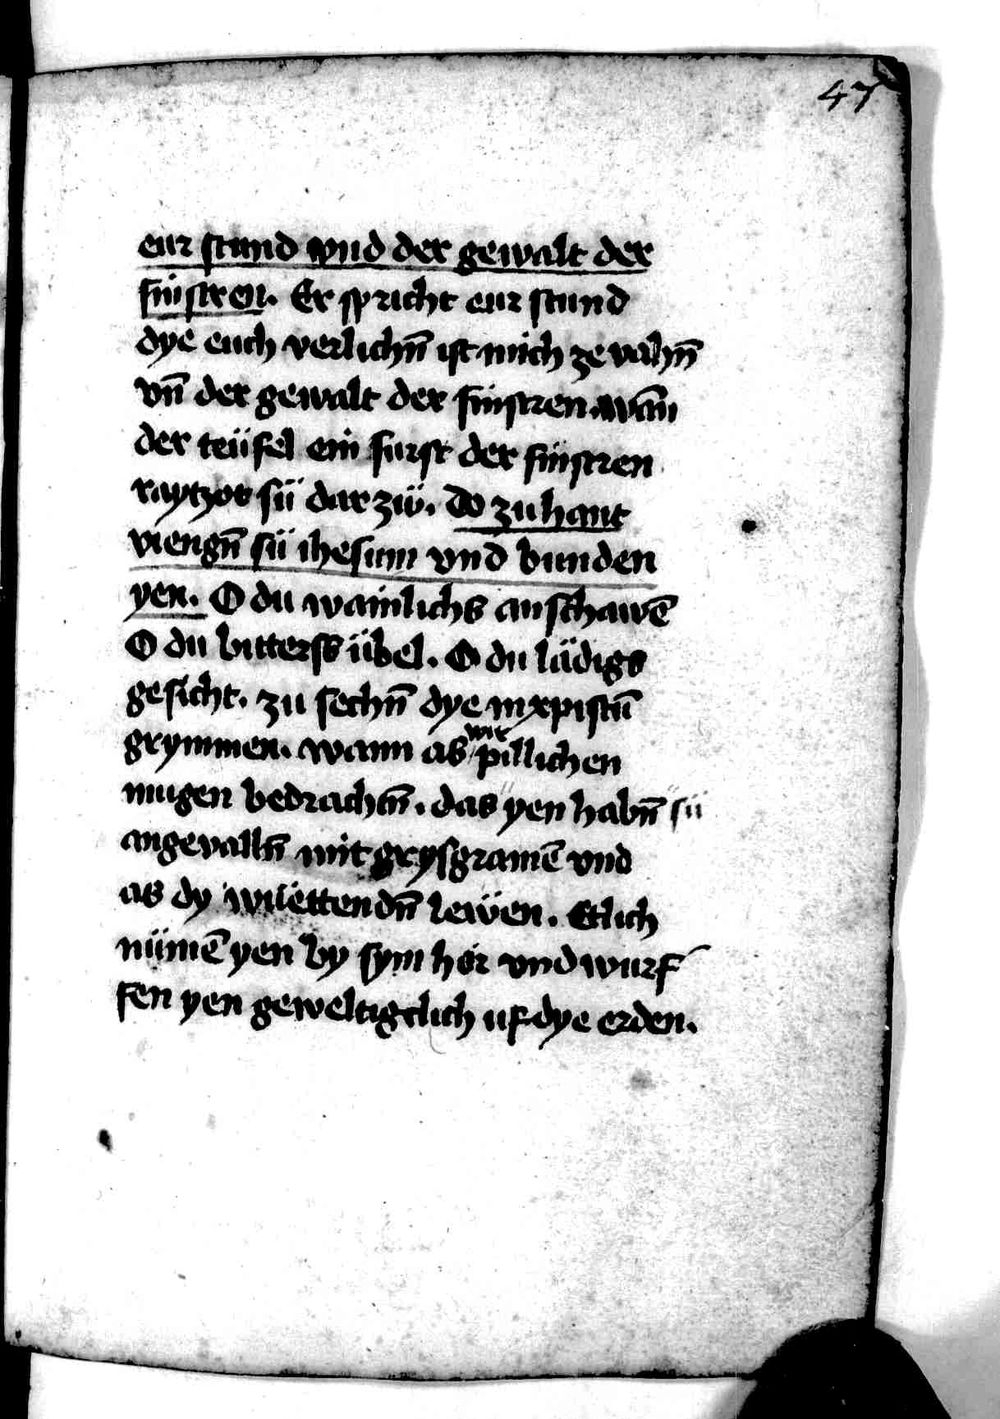 47
eur stund vnd der gewalt der
finstren. Er spricht eur stund
dye euch verlichn̄ ist mich ze vahn̄
vn̄ der gewalt der finstren. wan̄
der teüfel ein furst der finstren
raytzot sü dar zü. do zu hant
viengn̄ sü ihesum vnd bunden
yen. O du wainlichs anschawē
O du bitters übel. O du lädigs
gesicht. zu sechn̄ dye in xpistū
grymmen. wann as wir pillichen
mugen bedrachtn̄. das yen habn̄ sü
angevalln̄ mit grysgramē vnd
as dy wüettendn̄ lewen. Etlich
nümē yen by sym hör vnd wurf
fen yen geweltigclich uf dye erden.